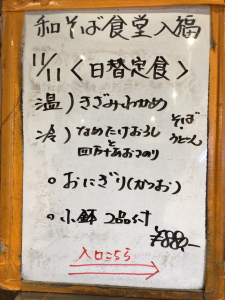 和そば食堂 入福
11/11 〈日替定食〉
温）きざみわかめ
そば
うどん
冷）なめたけおろし
と
四万十あおさのり
○ おにぎり（かつお）
○ 小鉢 2品付
¥880,-
入口こちら